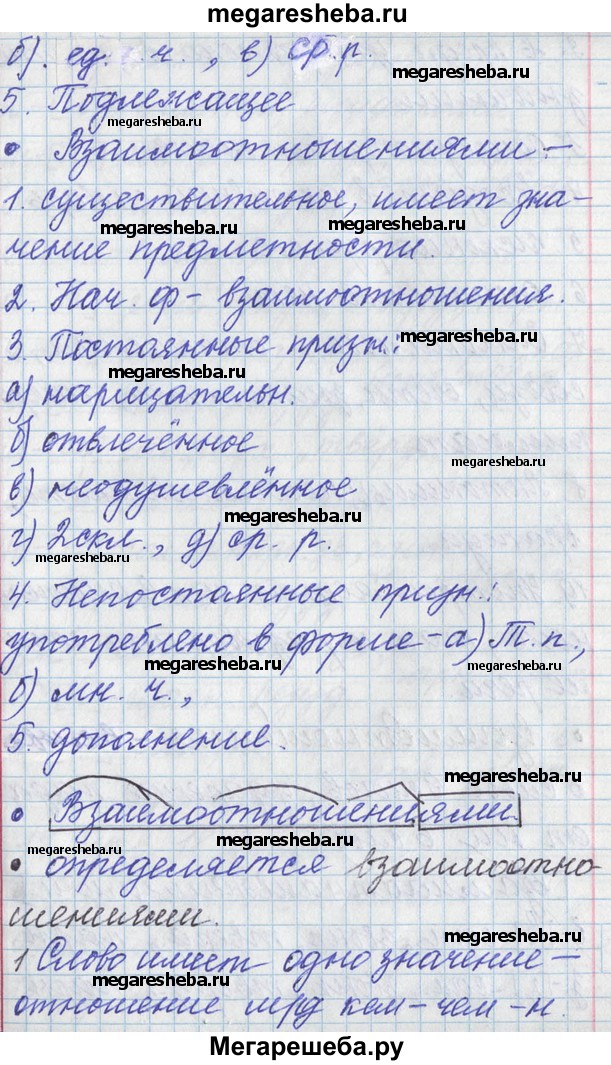 megaresheba.ru
б). ед. ч. , в) ср. р.
megaresheba.ru
5. Подлежащее
megaresheba.ru
• Взаимоотношениями –
megaresheba.ru
1. существительное, имеет зна-
megaresheba.ru megaresheba.ru
чение предметности.
2. Нач. ф – взаимоотношения.
3. Постоянные призн.:
megaresheba.ru
megaresheba.ru
а) нарицательн.
б) отвлечённое
megaresheba.ru
в) неодушевлённое
megaresheba.ru
г) 2 скл., д) ср. р.
megaresheba.ru
4. Непостоянные призн.:
megaresheba.ru
употреблено в форме – а) Т. п.,
megaresheba.ru megaresheba.ru
б) мн. ч. ,
5. дополнение.
megaresheba.ru
• Взаимоотношениями.
megaresheba.ru
megaresheba.ru
• определяется взаимоотно-
шениями.
megaresheba.ru
1 Слово имеет одно значение –
megaresheba.ru
отношение мжд кем – чем – н.
Мегарешеба.ру